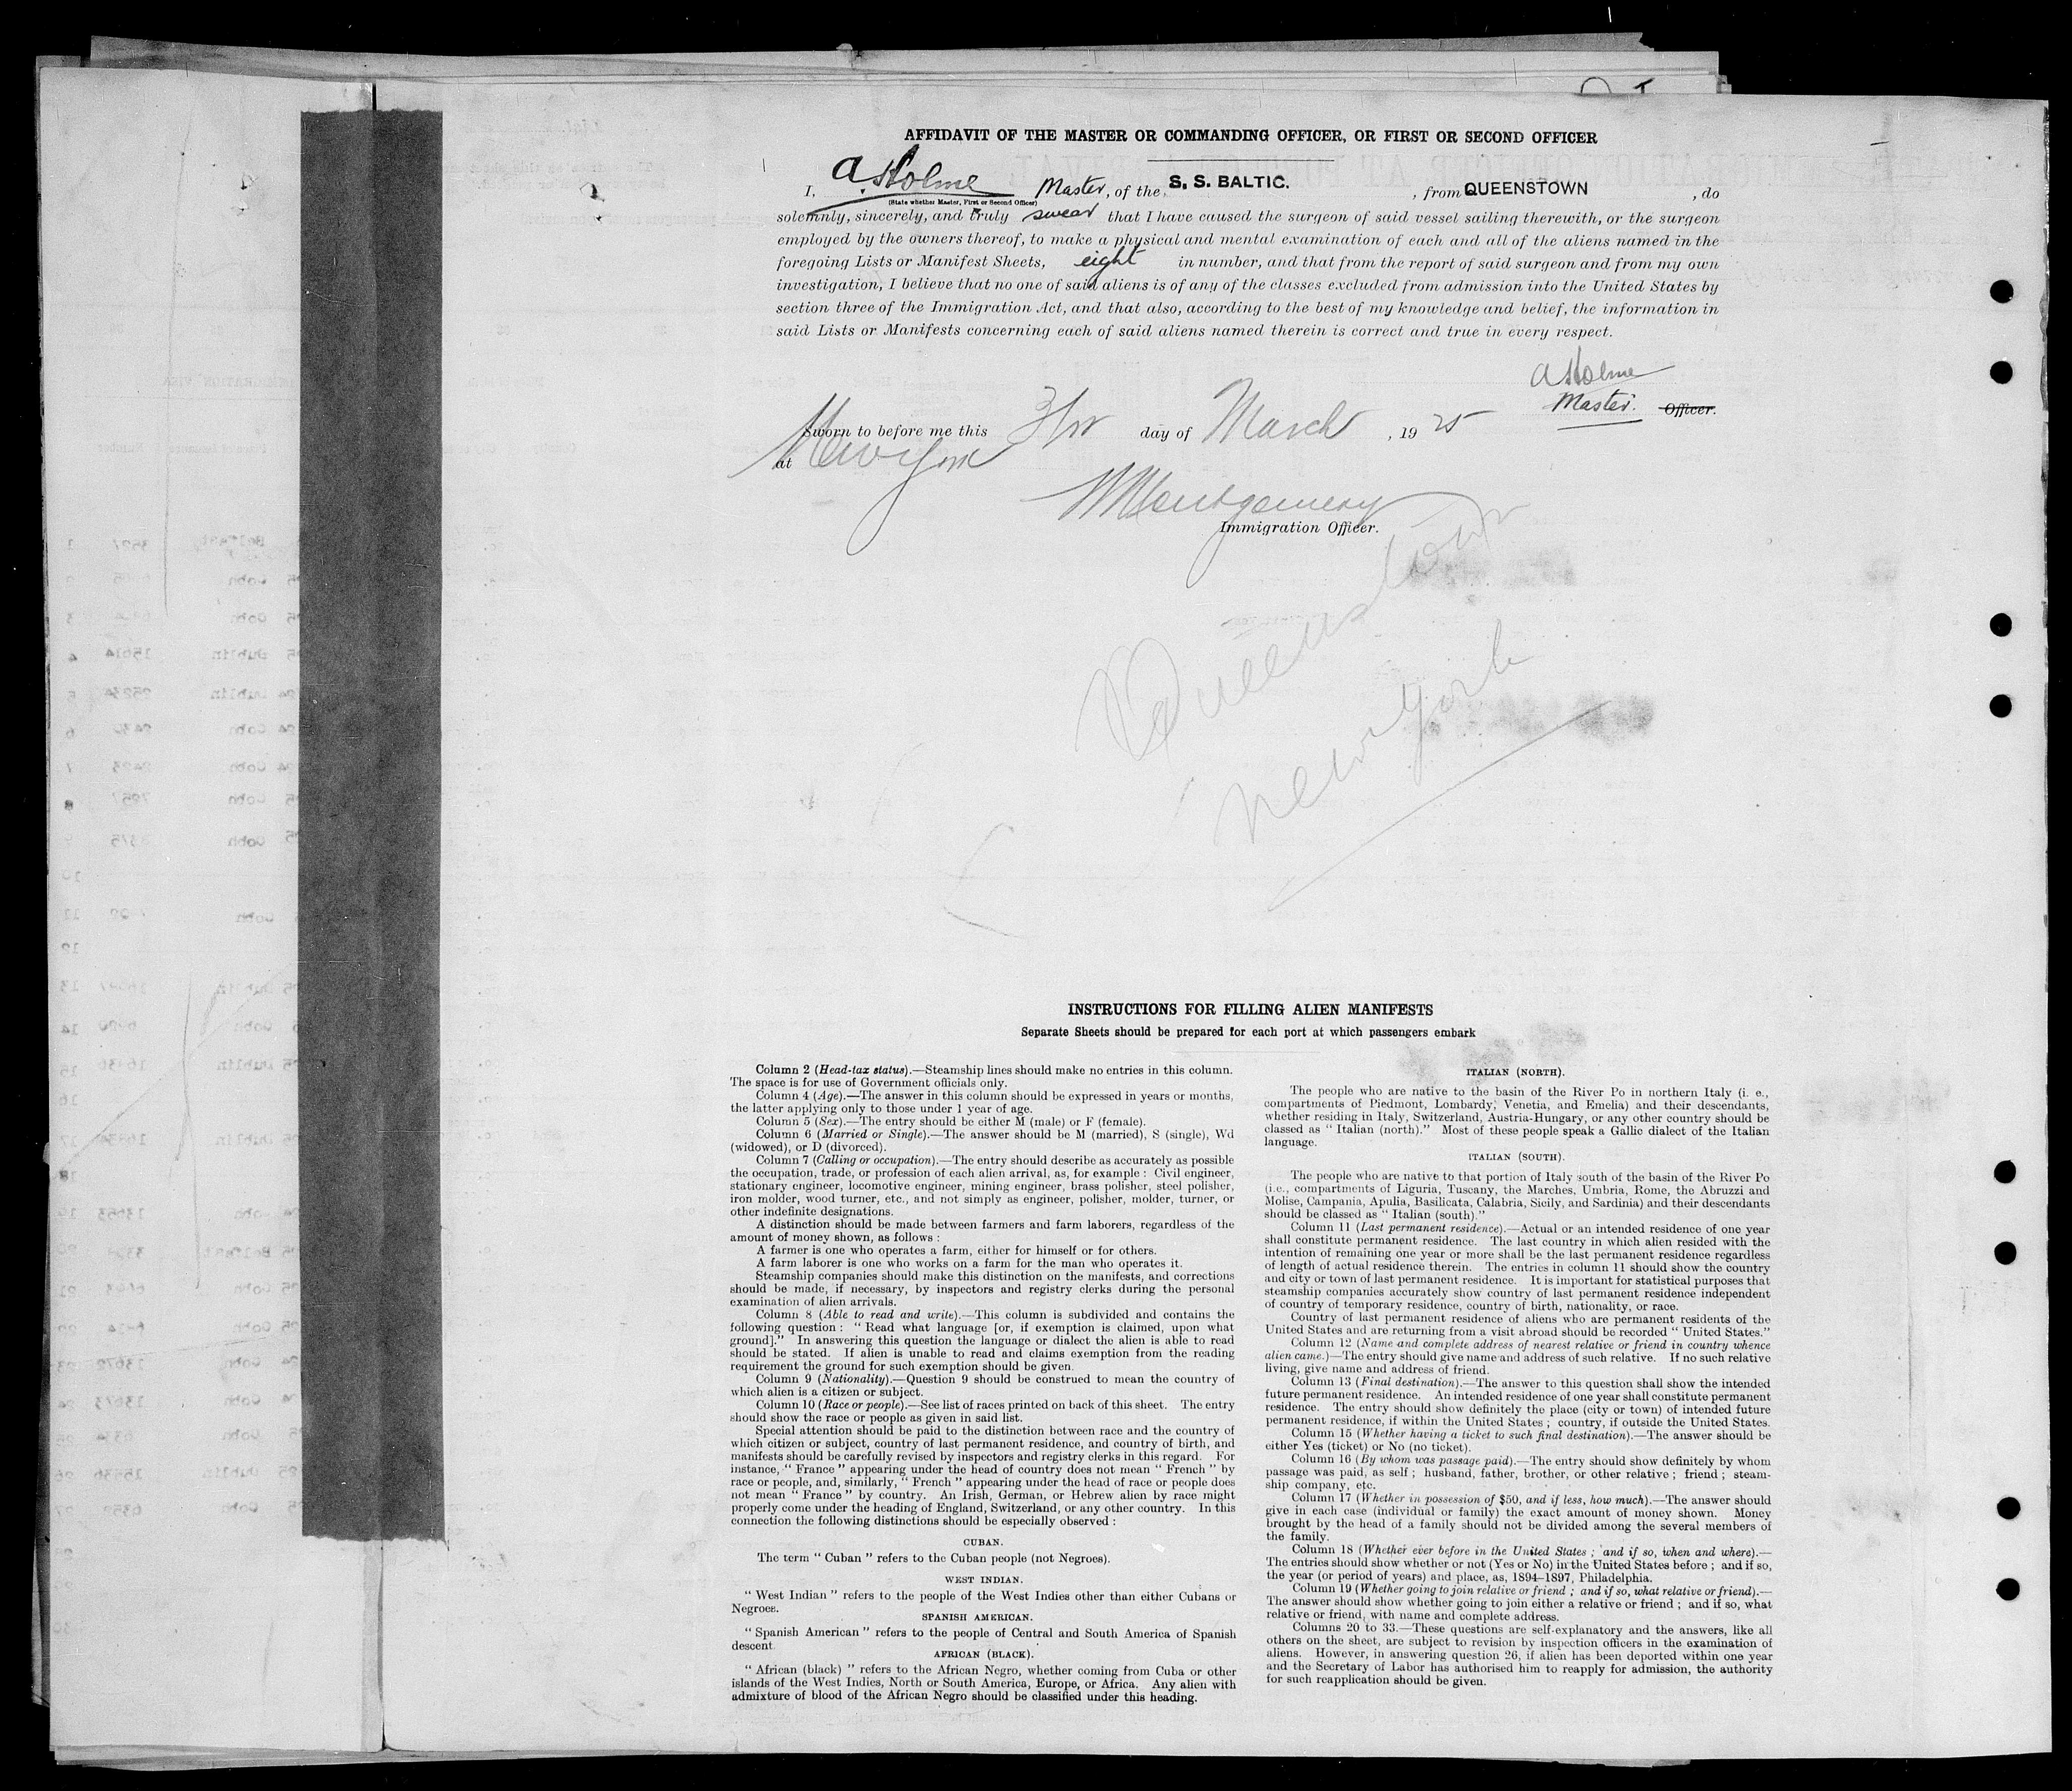 AFFIDAVIT OF THE MASTER OR COMMANDING OFFICER, OR FIRST OR SECOND OFFICER
I, A. Holme Master, of the S. S. BALTIC. , from QUEENSTOWN , do
(State whether Master, First or Second Officer)
solemnly, sincerely, and truly swear that I have caused the surgeon of said vessel sailing therewith, or the surgeon
employed by the owners thereof, to make a physical and mental examination of each and all of the aliens named in the
foregoing Lists or Manifest Sheets, eight in number, and that from the report of said surgeon and from my own
investigation, I believe that no one of said aliens is of any of the classes excluded from admission into the United States by
section three of the Immigration Act, and that also, according to the best of my knowledge and belief, the information in
said Lists or Manifests concerning each of said aliens named therein is correct and true in every respect.
A Holme
Master. Officer.
Sworn to before me this day of March , 19 25
at New York
Montgomery
Immigration Officer.
Queenstown
New York
INSTRUCTIONS FOR FILLING ALIEN MANIFESTS
Separate Sheets should be prepared for each port at which passengers embark
Column 2 (Head-tax status).—Steamship lines should make no entries in this column.
The space is for use of Government officials only.
Column 4 (Age).—The answer in this column should be expressed in years or months,
the latter applying only to those under 1 year of age.
Column 5 (Sex).—The entry should be either M (male) or F (female).
Column 6 (Married or Single).—The answer should be M (married), S (single), Wd
(widowed), or D (divorced).
Column 7 (Calling or occupation).—The entry should describe as accurately as possible
the occupation, trade, or profession of each alien arrival, as, for example : Civil engineer,
stationary engineer, locomotive engineer, mining engineer, brass polisher, steel polisher,
iron molder, wood turner, etc., and not simply as engineer, polisher, molder, turner, or
other indefinite designations.
A distinction should be made between farmers and farm laborers, regardless of the
amount of money shown, as follows :
A farmer is one who operates a farm, either for himself or for others.
A farm laborer is one who works on a farm for the man who operates it.
Steamship companies should make this distinction on the manifests, and corrections
should be made, if necessary, by inspectors and registry clerks during the personal
examination of alien arrivals.
Column 8 (Able to read and write).—This column is subdivided and contains the
following question : " Read what language [or, if exemption is claimed, upon what
ground]." In answering this question the language or dialect the alien is able to read
should be stated. If alien is unable to read and claims exemption from the reading
requirement the ground for such exemption should be given.
Column 9 (Nationality).—Question 9 should be construed to mean the country of
which alien is a citizen or subject.
Column 10 (Race or people).—See list of races printed on back of this sheet. The entry
should show the race or people as given in said list.
Special attention should be paid to the distinction between race and the country of
which citizen or subject, country of last permanent residence, and country of birth, and
manifests should be carefully revised by inspectors and registry clerks in this regard. For
instance, " France " appearing under the head of country does not mean " French " by
race or people, and, similarly, " French " appearing under the head of race or people does
not mean " France " by country. An Irish, German, or Hebrew alien by race might
properly come under the heading of England, Switzerland, or any other country. In this
connection the following distinctions should be especially observed :
CUBAN.
The term " Cuban " refers to the Cuban people (not Negroes).
WEST INDIAN.
" West Indian " refers to the people of the West Indies other than either Cubans or
Negroes.
SPANISH AMERICAN.
" Spanish American " refers to the people of Central and South America of Spanish
descent
AFRICAN (BLACK).
" African (black) " refers to the African Negro, whether coming from Cuba or other
islands of the West Indies, North or South America, Europe, or Africa. Any alien with
admixture of blood of the African Negro should be classified under this heading.
ITALIAN (NORTH).
The people who are native to the basin of the River Po in northern Italy (i. e.,
compartments of Piedmont, Lombardy, Venetia, and Emelia) and their descendants,
whether residing in Italy, Switzerland, Austria-Hungary, or any other country should be
classed as " Italian (north)." Most of these people speak a Gallic dialect of the Italian
language.
ITALIAN (SOUTH).
The people who are native to that portion of Italy south of the basin of the River Po
(i.e., compartments of Liguria, Tuscany, the Marches, Umbria, Rome, the Abruzzi and
Molise, Campania, Apulia, Basilicata, Calabria, Sicily, and Sardinia) and their descendants
should be classed as " Italian (south)."
Column 11 (Last permanent residence).—Actual or an intended residence of one year
shall constitute permanent residence. The last country in which alien resided with the
intention of remaining one year or more shall be the last permanent residence regardless
of length of actual residence therein. The entries in column 11 should show the country
and city or town of last permanent residence. It is important for statistical purposes that
steamship companies accurately show country of last permanent residence independent
of country of temporary residence, country of birth, nationality, or race.
Country of last permanent residence of aliens who are permanent residents of the
United States and are returning from a visit abroad should be recorded " United States."
Column 12 (Name and complete address of nearest relative or friend in country whence
alien came.)—The entry should give name and address of such relative. If no such relative
living, give name and address of friend.
Column 13 (Final destination).—The answer to this question shall show the intended
future permanent residence. An intended residence of one year shall constitute permanent
residence. The entry should show definitely the place (city or town) of intended future
permanent residence, if within the United States ; country, if outside the United States.
Column 15 (Whether having a ticket to such final destination).—The answer should be
either Yes (ticket) or No (no ticket).
Column 16 (By whom was passage paid).—The entry should show definitely by whom
passage was paid, as self ; husband, father, brother, or other relative ; friend ; steam-
ship company, etc.
Column 17 (Whether in possession of $50, and if less, how much).—The answer should
give in each case (individual or family) the exact amount of money shown. Money
brought by the head of a family should not be divided among the several members of
the family.
Column 18 (Whether ever before in the United States ; and if so, when and where).—
The entries should show whether or not (Yes or No) in the United States before ; and if so,
the year (or period of years) and place, as, 1894–1897, Philadelphia.
Column 19 (Whether going to join relative or friend ; and if so, what relative or friend).—
The answer should show whether going to join either a relative or friend ; and if so, what
relative or friend, with name and complete address.
Columns 20 to 33.—These questions are self-explanatory and the answers, like all
others on the sheet, are subject to revision by inspection officers in the examination of
aliens. However, in answering question 26, if alien has been deported within one year
and the Secretary of Labor has authorised him to reapply for admission, the authority
for such reapplication should be given.